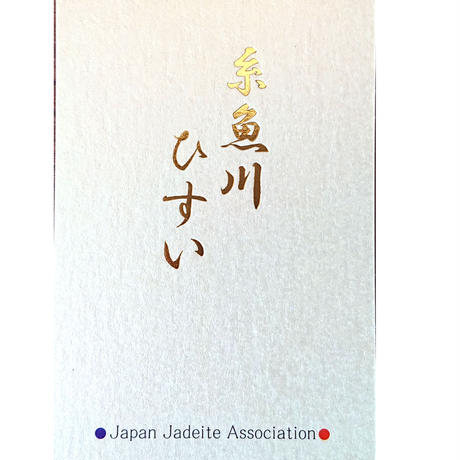 糸魚川
ひすい
Japan Jadeite Association